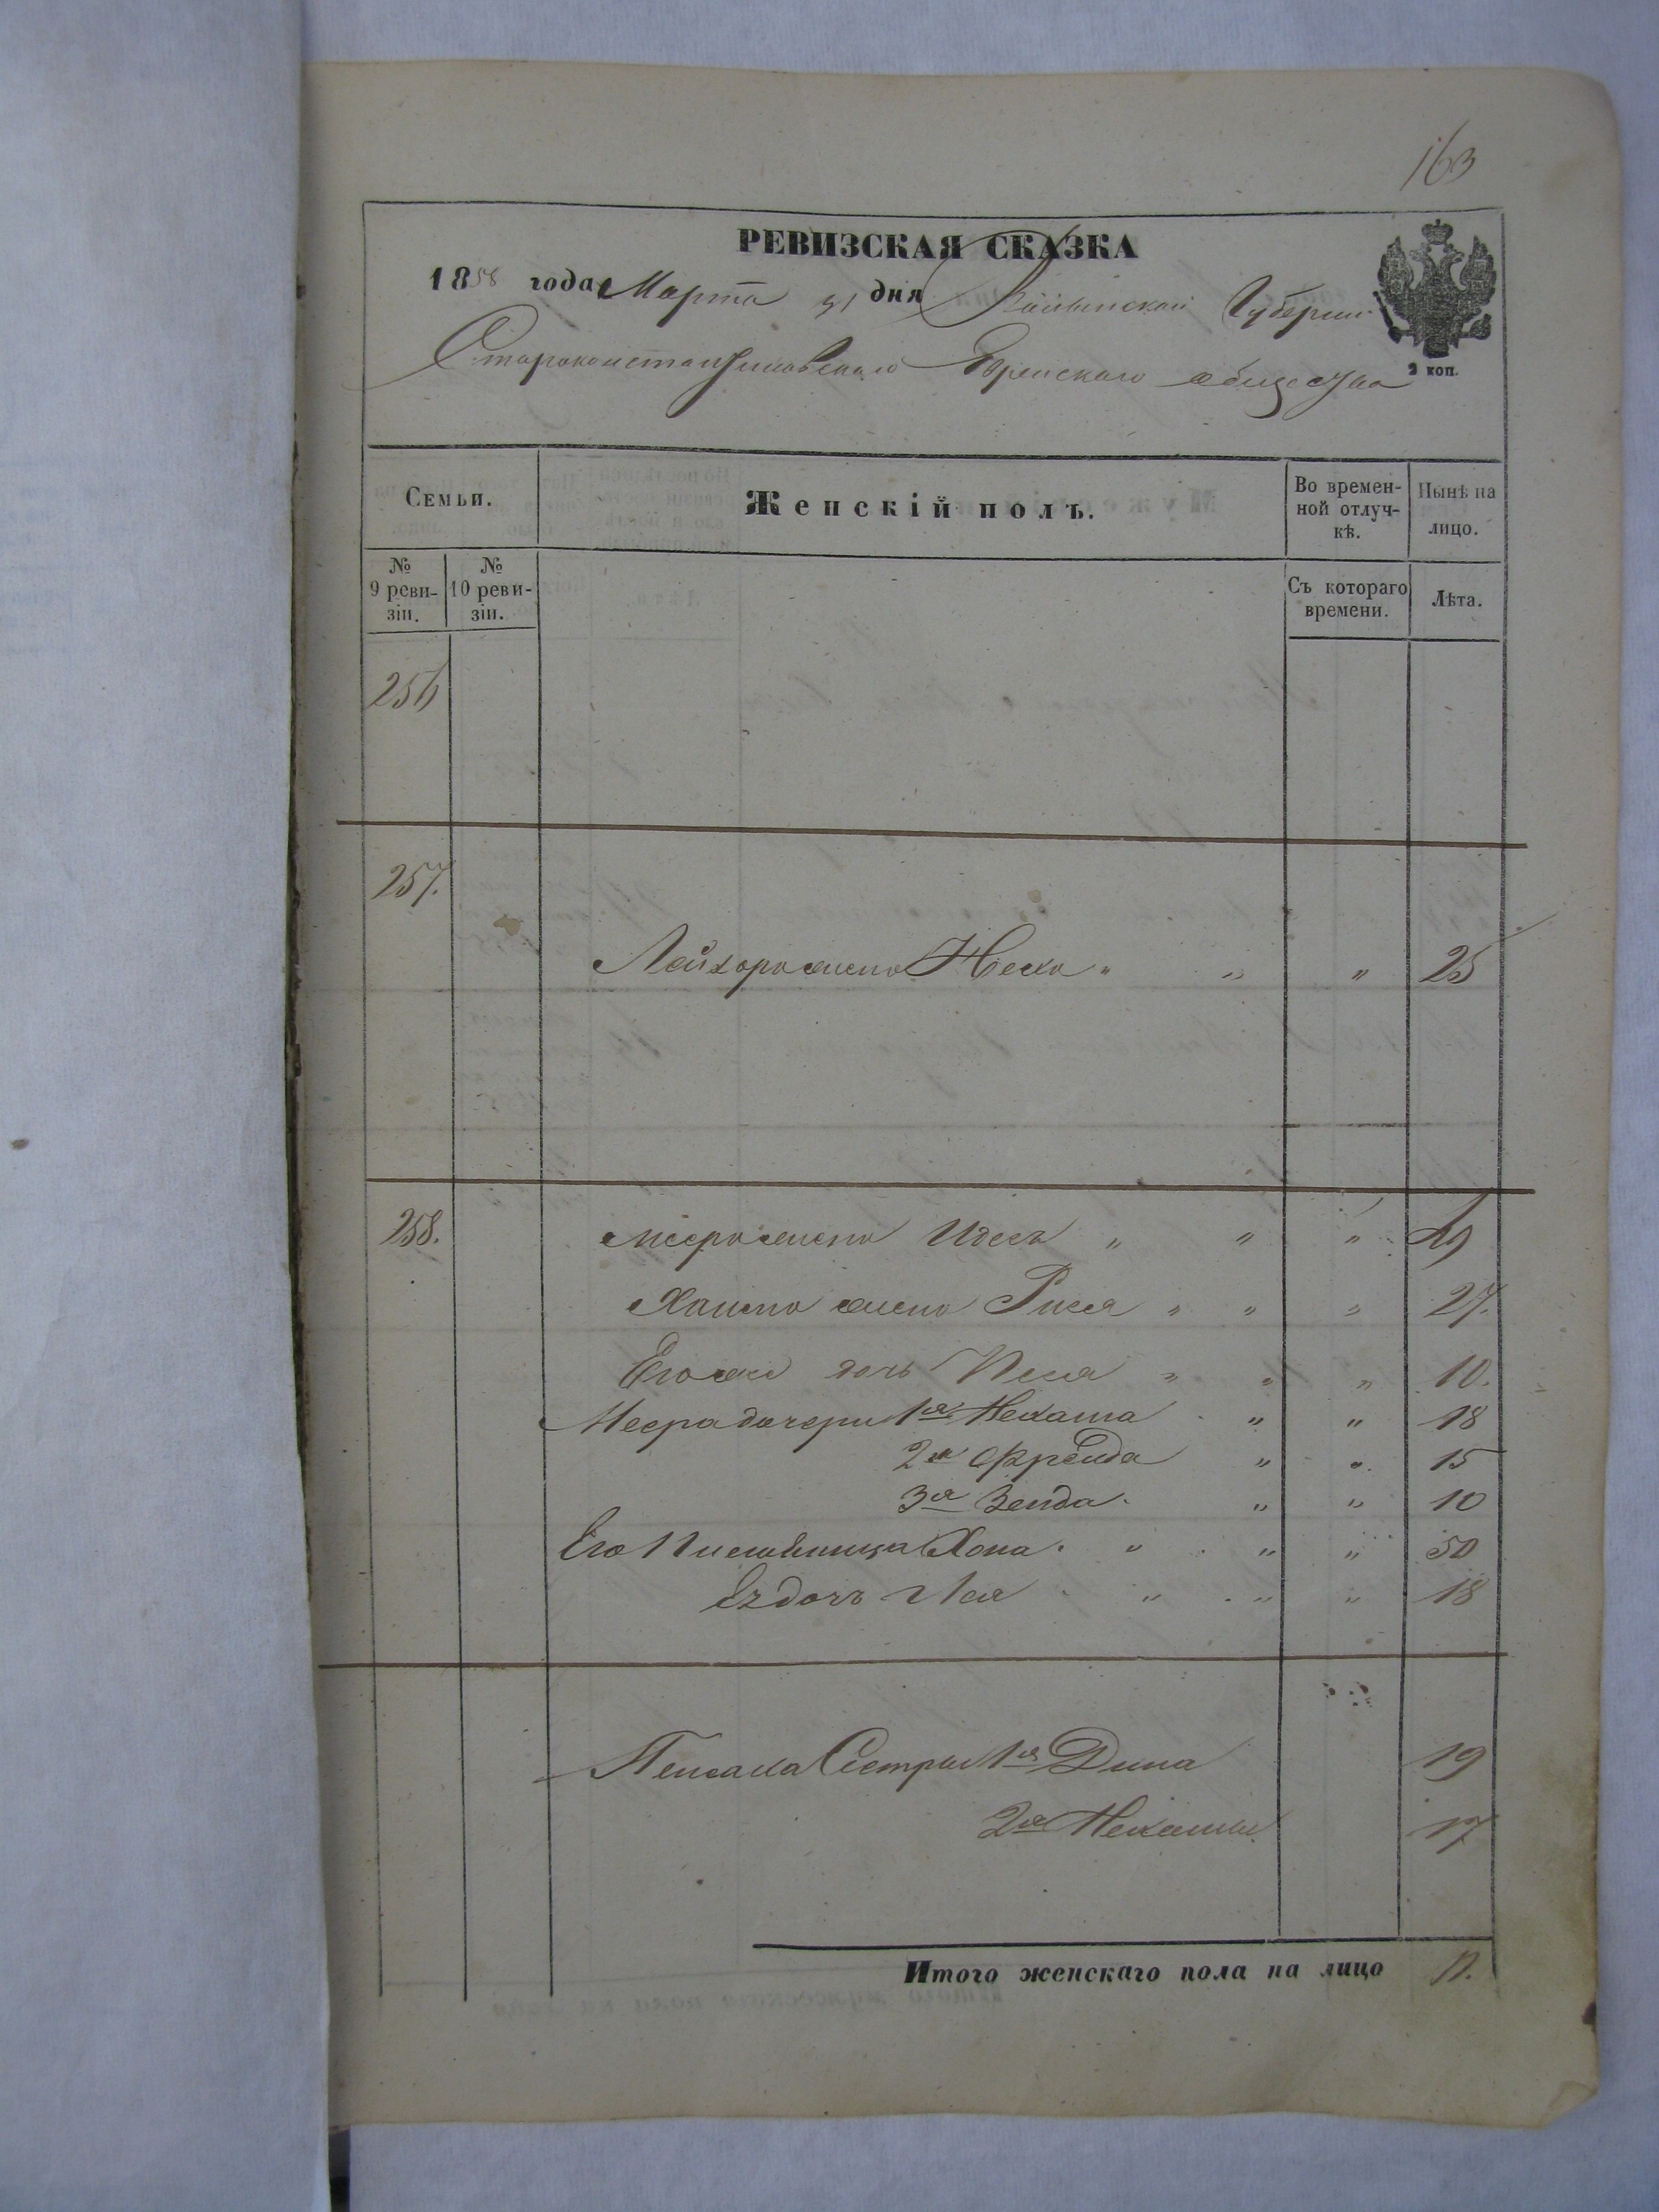 163
РЕВИЗСКАЯ СКАЗКА
1858 года Марта 31 дня Волынской Губернии
Староконстантиновского Еврейского общества
2 коп.
Семьи.
Женскій полъ.
Во времен-
ной отлуч-
кѣ.
Нынѣ на
лицо.
№
9 реви-
зіи.
№
10 реви-
зіи.
Съ котораго
времени.
Лѣта.
256
257.
жена Неска " " " 25
258.
жена Идесъ " " "
жена Рися " " " 27.
Его же дочь Песя " " " 10.
Меера дочери 1я Нехама " " 18
2я Фрейда " " 15
3я Зенда " " 10
Его Хона " " " 50
Ея дочь " " " 18
Сестры 1я Дина 19
2я 17
Итого женскаго пола на лицо 11.